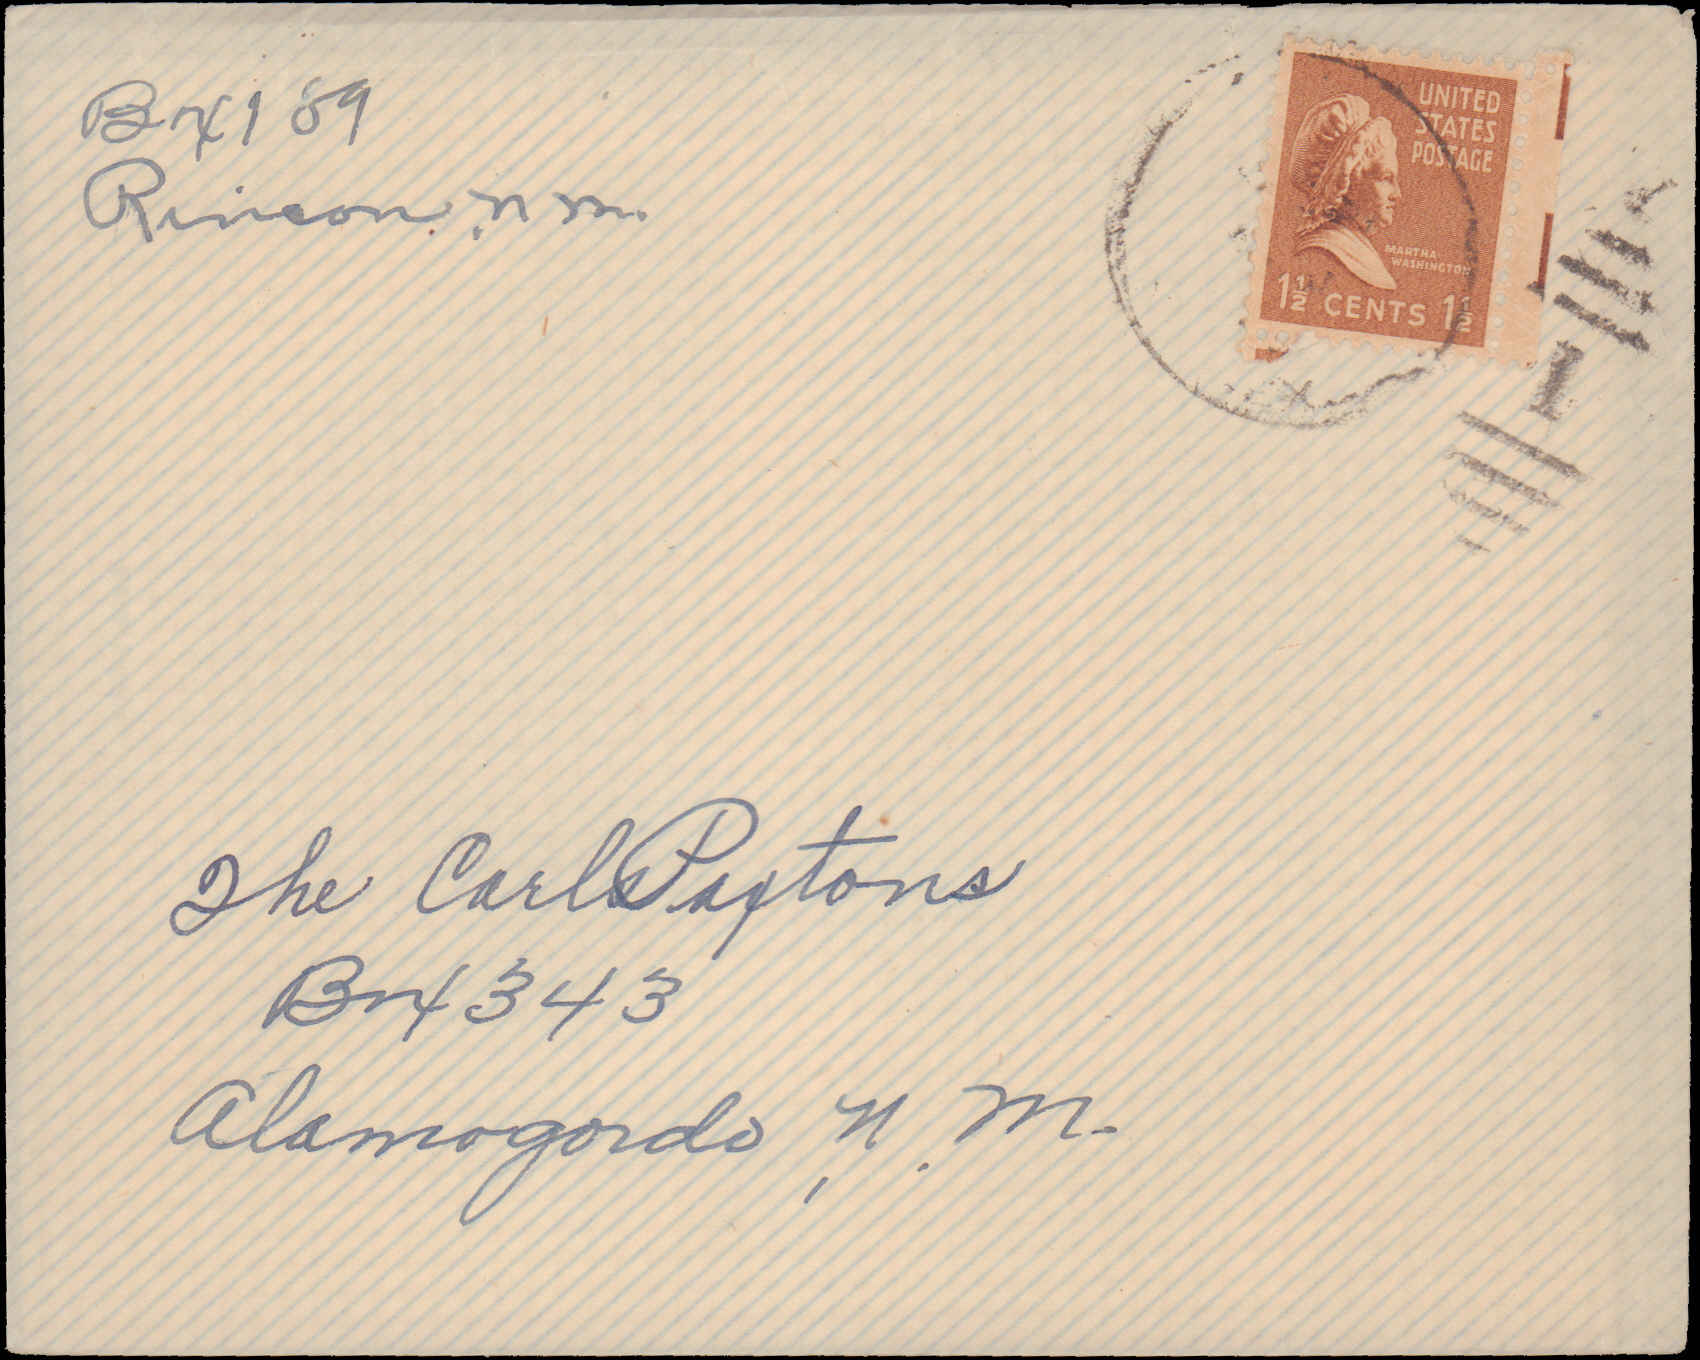 Box 189
Rincon, N M.
UNITED
STATES
POSTAGE
MARTHA
WASHINGTON
1½ CENTS 1½
1
The Carl Paytons
Box 343
Alamogordo, N. M.